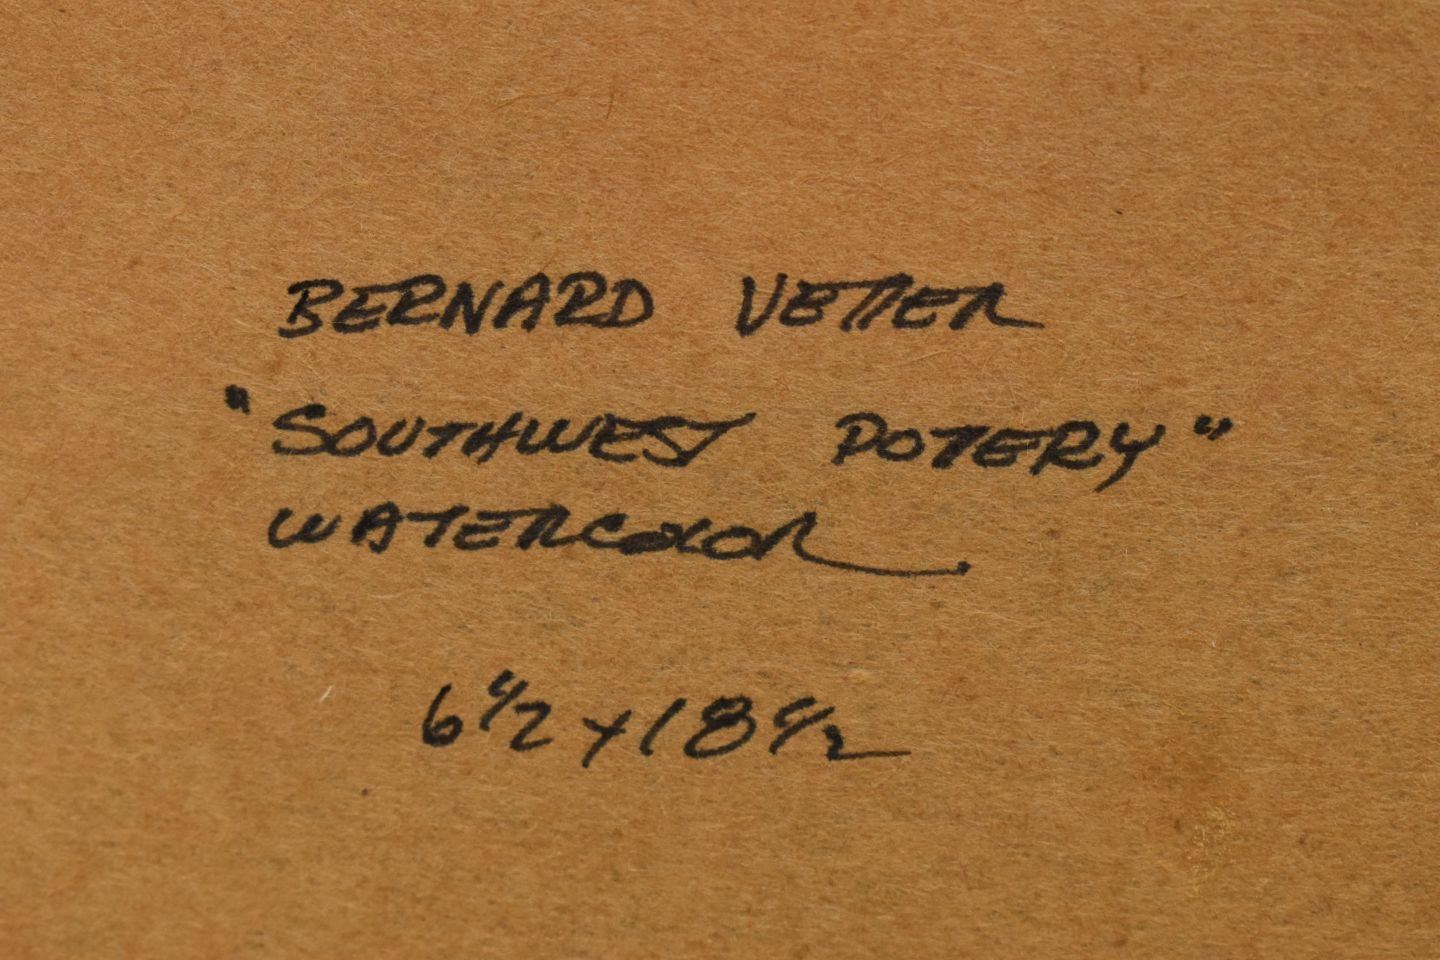 BERNARD VETTER
"SOUTHWEST POTTERY"
WATERCOLOR
6 1/2 x 18 1/2